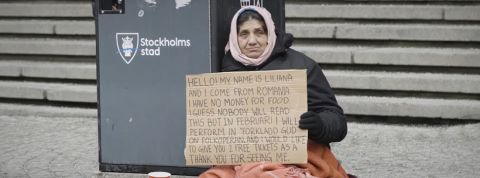 Stockholms
stad
HELLO! MY NAME IS LILIANA
AND I COME FROM ROMANIA
I HAVE NO MONEY FOR FOOD
I GUESS NOBODY WILL READ
THIS BUT IN FEBRUARI I WILL
PERFORM IN "FÖRKLÄDD GUD"
ON FOLKOPERAN AND I WOULD LIKE
TO GIVE YOU 1 FREE TICKETS AS A
THANK YOU FOR SEEING ME.